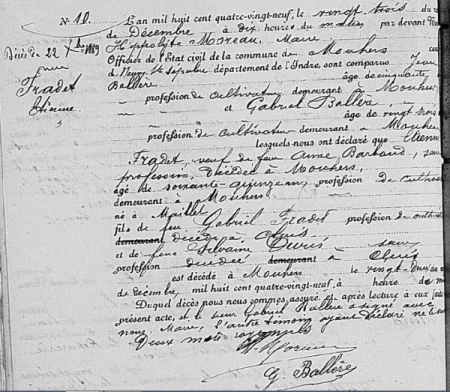 N° 10.
Décès de 22 Xbre 1889
Fradet
Etienne
L'an mil huit cent quatre-vingt-neuf, le vingt trois du
de Décembre à dix heures du matin par devant
Hippolyte Moreau, Maire,
Officier de l'État civil de la commune de Mouhers
département de l'Indre, sont comparus Jean
Ballère âge de cinquante
profession de cultivateur demeurant à Mouhers
et Gabriel Ballère,
âge de vingt trois
profession de cultivateur demeurant à Mouhers
lesquels nous ont déclaré que Etienne
Fradet, veuf de feue Anne Barbaud, sans
profession, décédée à Mouhers,
âgé de soixante quinze ans profession de
demeurant à Mouhers
né à Maillet
fils de feu Gabriel Fradet profession de
demeurant décédé à Cluis
et de feue Silvaine sans
profession décédée demeurant à Cluis
est décédé à Mouhers le vingt-deux
de décembre, mil huit cent quatre-vingt-neuf, à heures de
Duquel décès nous nous sommes assuré, et après lecture aux
présent acte, et le sieur Gabriel Ballère a signé avec
nous, Maire, l'autre témoin ayant déclaré ne le
Deux mots
H. Moreau
G. Ballère